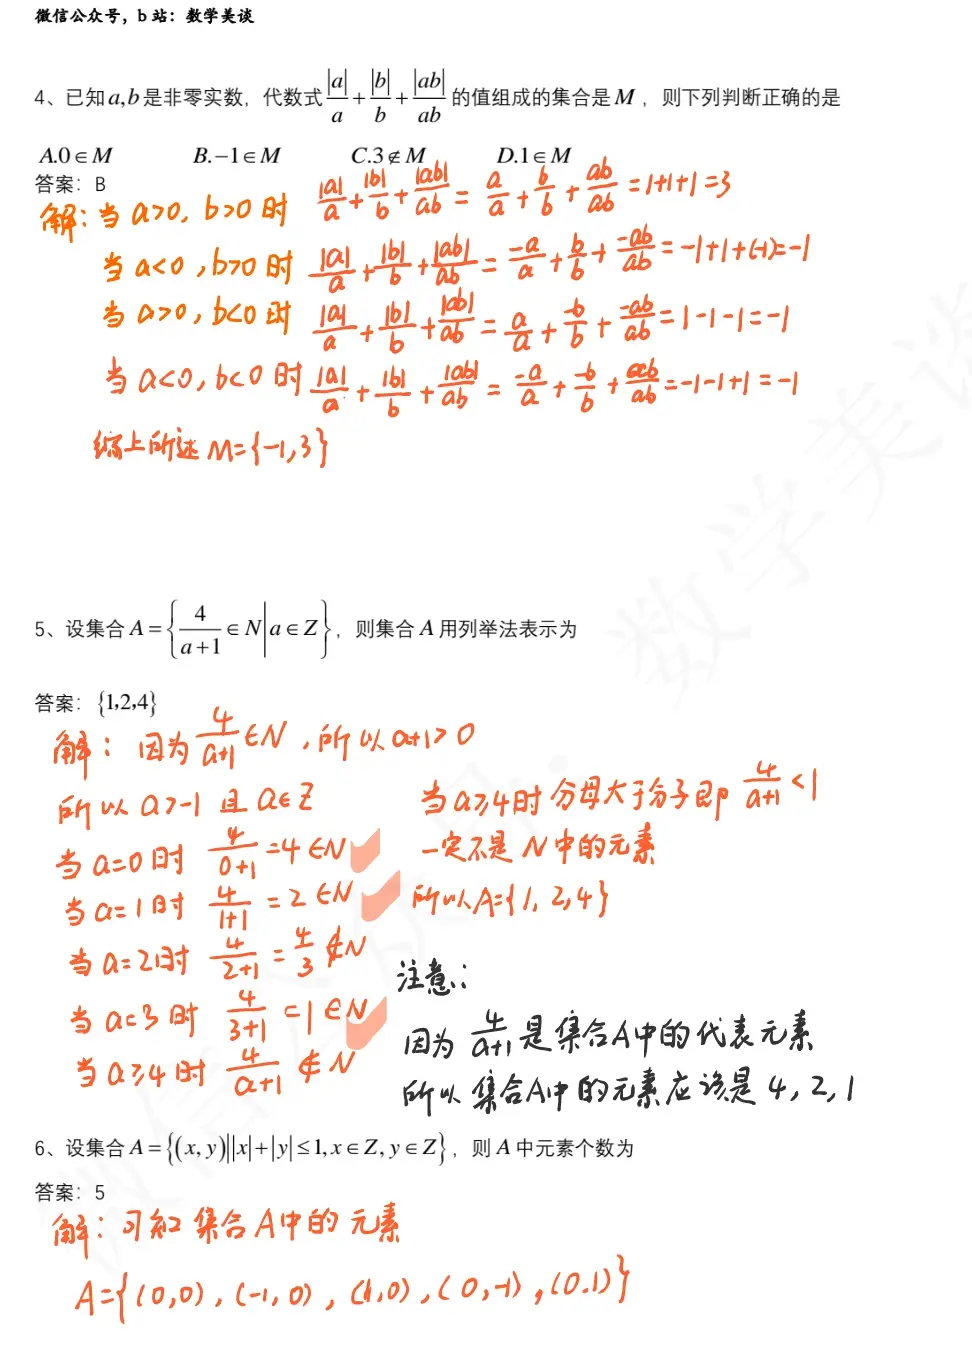 微信公众号，b 站：数学美谈
4、已知a,b是非零实数，代数式|a|/a+|b|/b+|ab|/ab的值组成的集合是M，则下列判断正确的是
A.0∈M B.−1∈M C.3∉M D.1∈M
答案：B
解：当a>0, b>0时 |a|/a+|b|/b+|ab|/ab=a/a+b/b+ab/ab=1+1+1=3
当a<0,b>0时 |a|/a+|b|/b+|ab|/ab=-a/a+b/b+-ab/ab=-1+1+(-1)=-1
当a>0,b<0时 |a|/a+|b|/b+|ab|/ab=a/a+-b/b+-ab/ab=1-1-1=-1
当a<0,b<0时 |a|/a+|b|/b+|ab|/ab=-a/a+-b/b+ab/ab=-1-1+1=-1
综上所述 M={-1,3}
5、设集合A={4/(a+1)∈N|a∈Z}，则集合A用列举法表示为
答案：{1,2,4}
解：因为4/(a+1)∈N,所以a+1>0
所以a>-1且a∈Z
当a=0时 4/(0+1)=4∈N
当a=1时 4/(1+1)=2∈N
当a=2时 4/(2+1)=4/3∉N
当a=3时 4/(3+1)=1∈N
当a≥4时 4/(a+1)∉N
当a≥4时分母大于分子即4/(a+1)<1
一定不是N中的元素
所以A={1,2,4}
注意:
因为4/(a+1)是集合A中的代表元素
所以集合A中的元素应该是4,2,1
6、设集合A={(x,y)||x|+|y|≤1,x∈Z,y∈Z}，则A中元素个数为
答案：5
解:可知集合A中的元素
A={(0,0),(-1,0),(1,0),(0,-1),(0.1)}
微信公众号：数学美谈